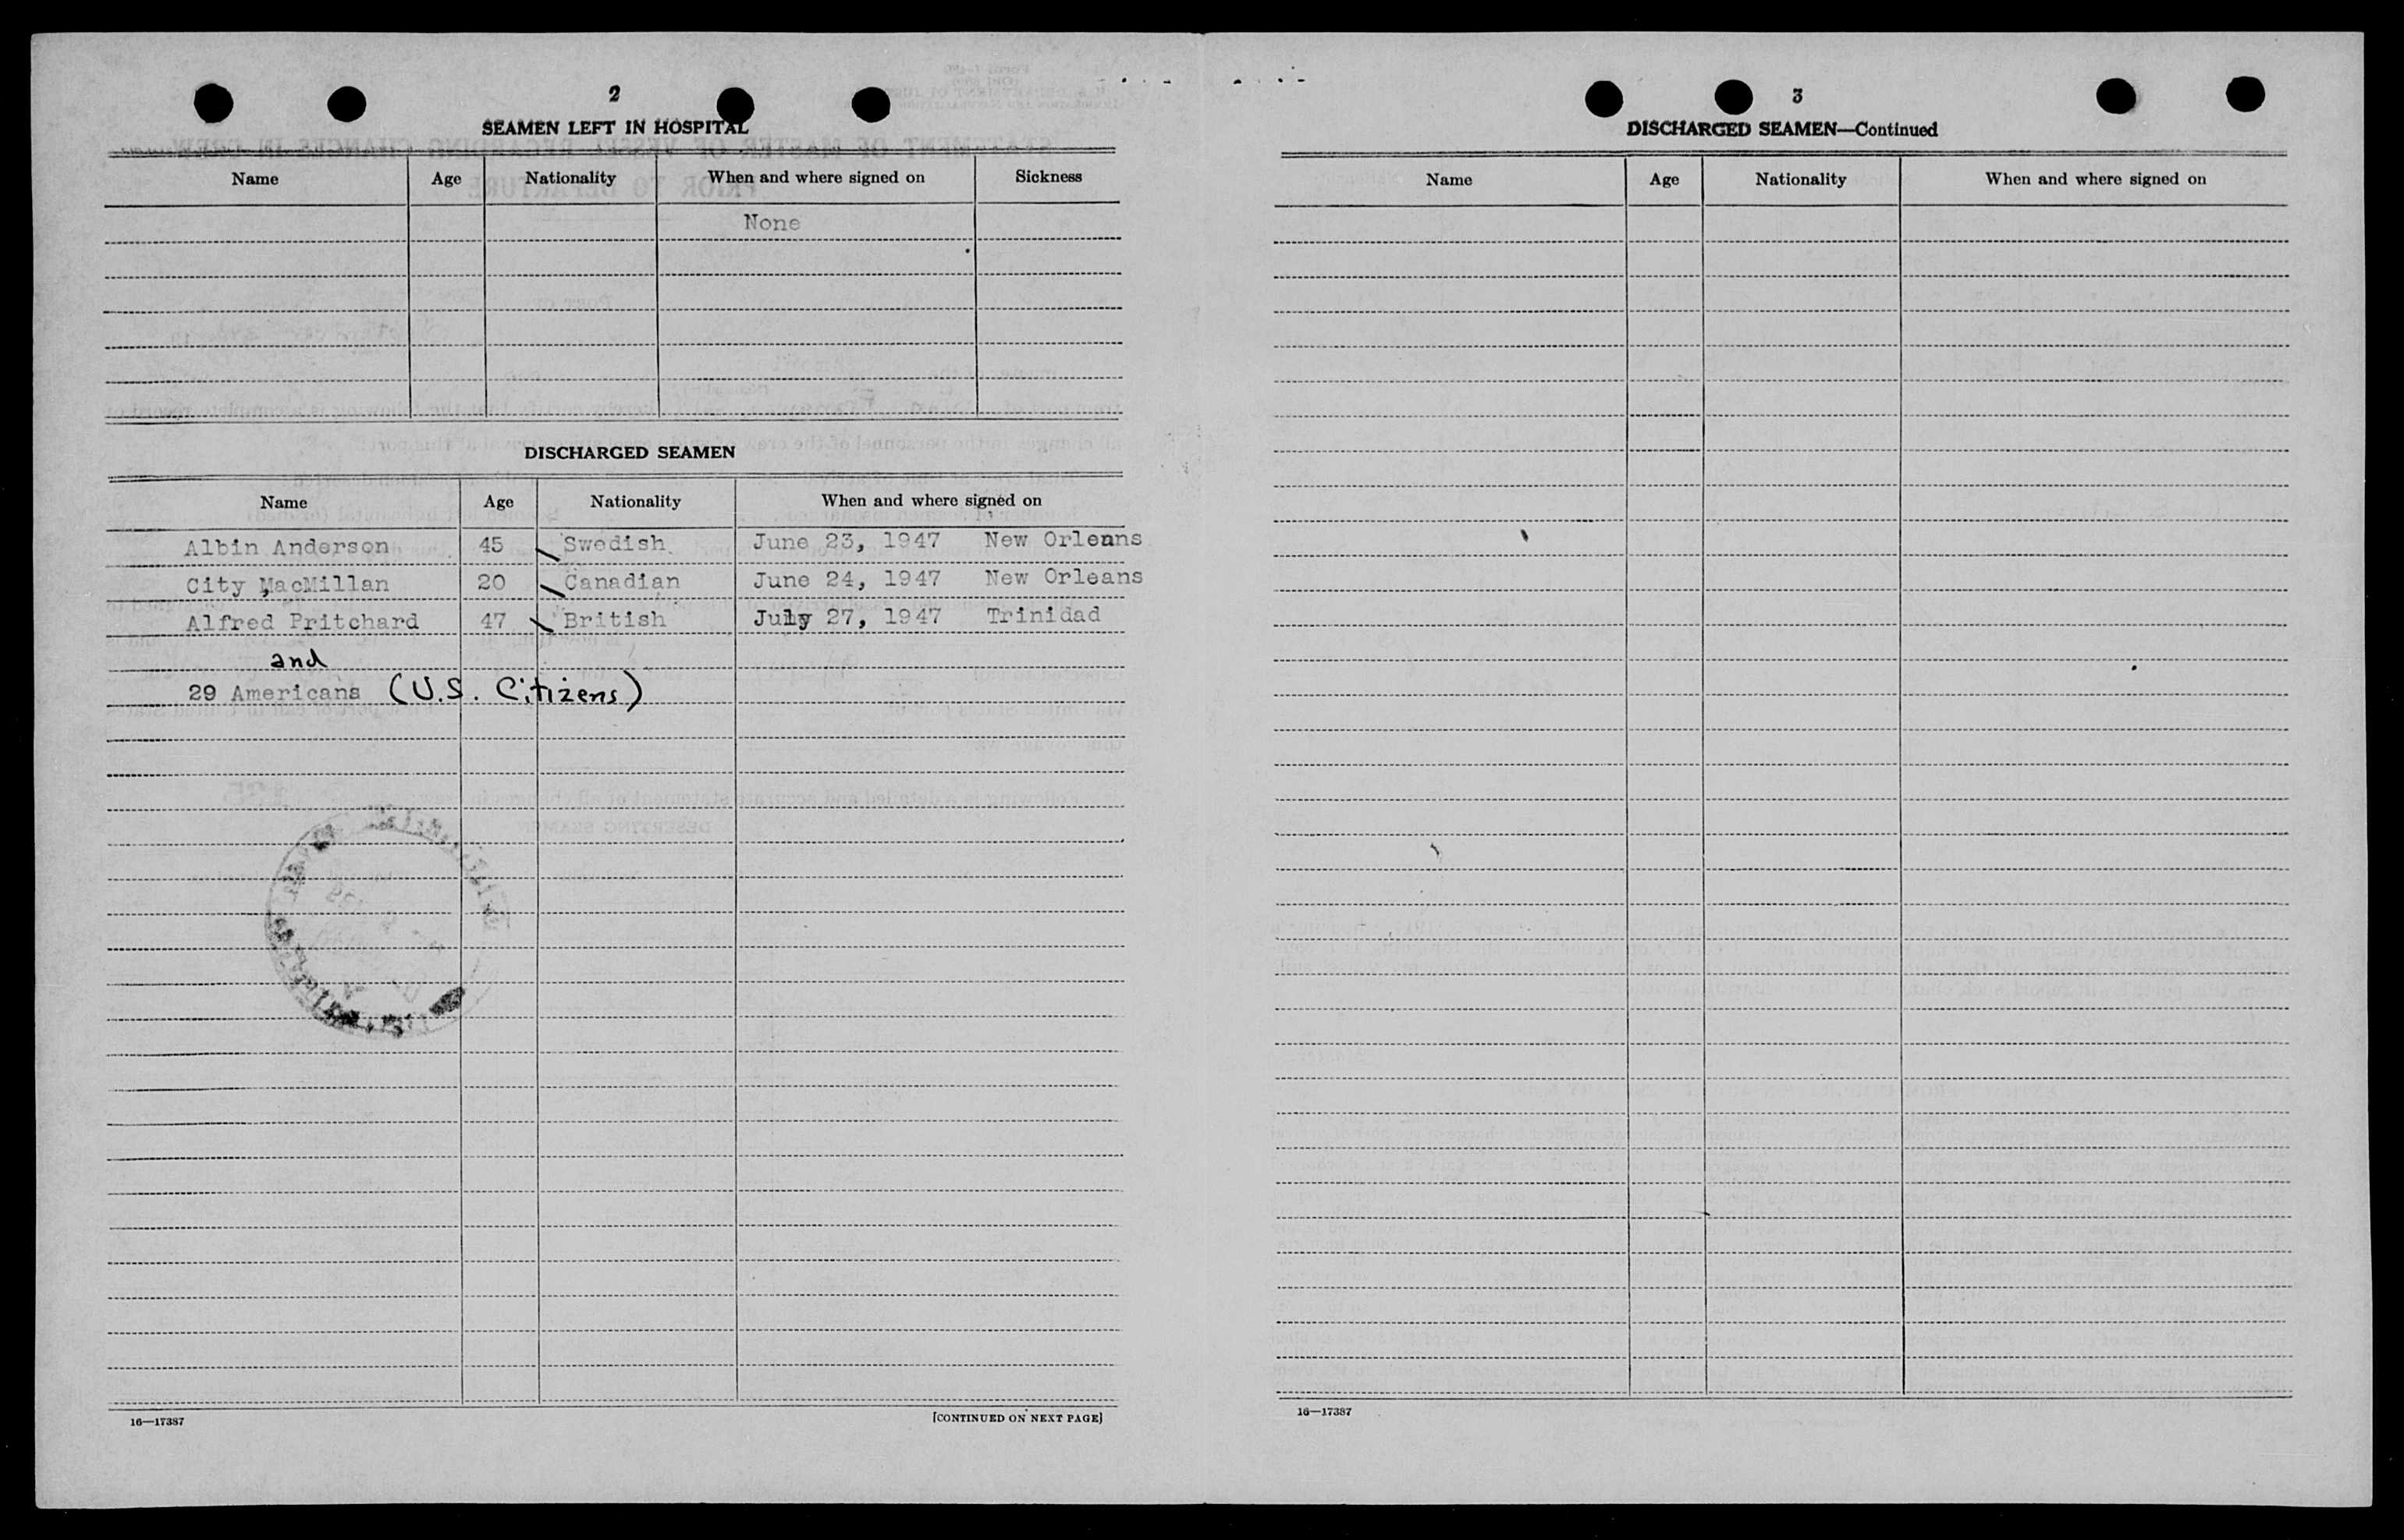 2
SEAMEN LEFT IN HOSPITAL
Name Age Nationality When and where signed on Sickness
None
DISCHARGED SEAMEN
Name Age Nationality When and where signed on
Albin Anderson 45 Swedish June 23, 1947 New Orleans
City MacMillan 20 Canadian June 24, 1947 New Orleans
Alfred Pritchard 47 British July 27, 1947 Trinidad
and
29 Americans (U.S. Citizens)
16—17387 [CONTINUED ON NEXT PAGE]
3
DISCHARGED SEAMEN—Continued
Name Age Nationality When and where signed on
16—17387